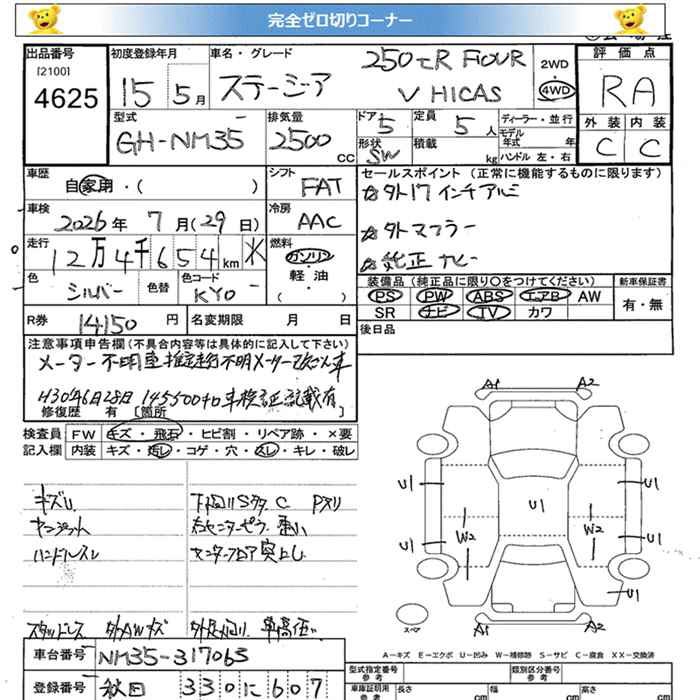 完全ゼロ切りコーナー
出品番号
[2100]
4625
初度登録年月
15 5月
車名・グレード
ステージア
250tR FOUR
V HICAS
2WD
4WD
評価点
RA
外装 内装
C C
型式
GH-NM35
排気量
2500
CC
ドア
5
形状
SW
定員
5人
積載
kg
ディーラー・並行
モデル
年式 年
ハンドル 左・右
車歴
自家用・( )
シフト
FAT
車検
2026年 7月(29日)
冷房
AAC
走行
12万4千654km
燃料
ガソリン
軽・油
( )
色
シルバー
色替
色コード
KY0
R券
14150円
名変期限 月 日
セールスポイント (正常に機能するものに限ります)
☆外17インチアルミ
☆外マフラー
☆純正ナビー
装備品(純正品に限り○をつけてください)
PS PW ABS エアB AW
SR ナビ TV カワ
新車保証書
有・無
後日品
注意事項申告欄(不具合内容等は具体的に記入して下さい)
メーター不明車
H30年6月28日 145500キロ 車検証記載有
修復歴 有 [箇所 ]
検査員
記入欄
FW キズ・飛石・ヒビ割・リペア跡・×要
内装 キズ・汚レ・コゲ・穴・スレ・キレ・破レ
キズU
ハンドルスレ
下回りSクサC
センターフロア突上し
スタッドレス 外AWキズ
A1 A2
U1 U1
U1
W2 W2
U1 U1
U1
スペア
A1 A2
A-キズ E-エクボ U-凹み W-補修跡 S-サビ C-腐食 XX-交換済
車台番号
NM35-317065
登録番号
秋田 330 に 607
型式指定
参考
類別区分番号
参考
車庫証明用
長さ cm 幅 cm 高さ cm